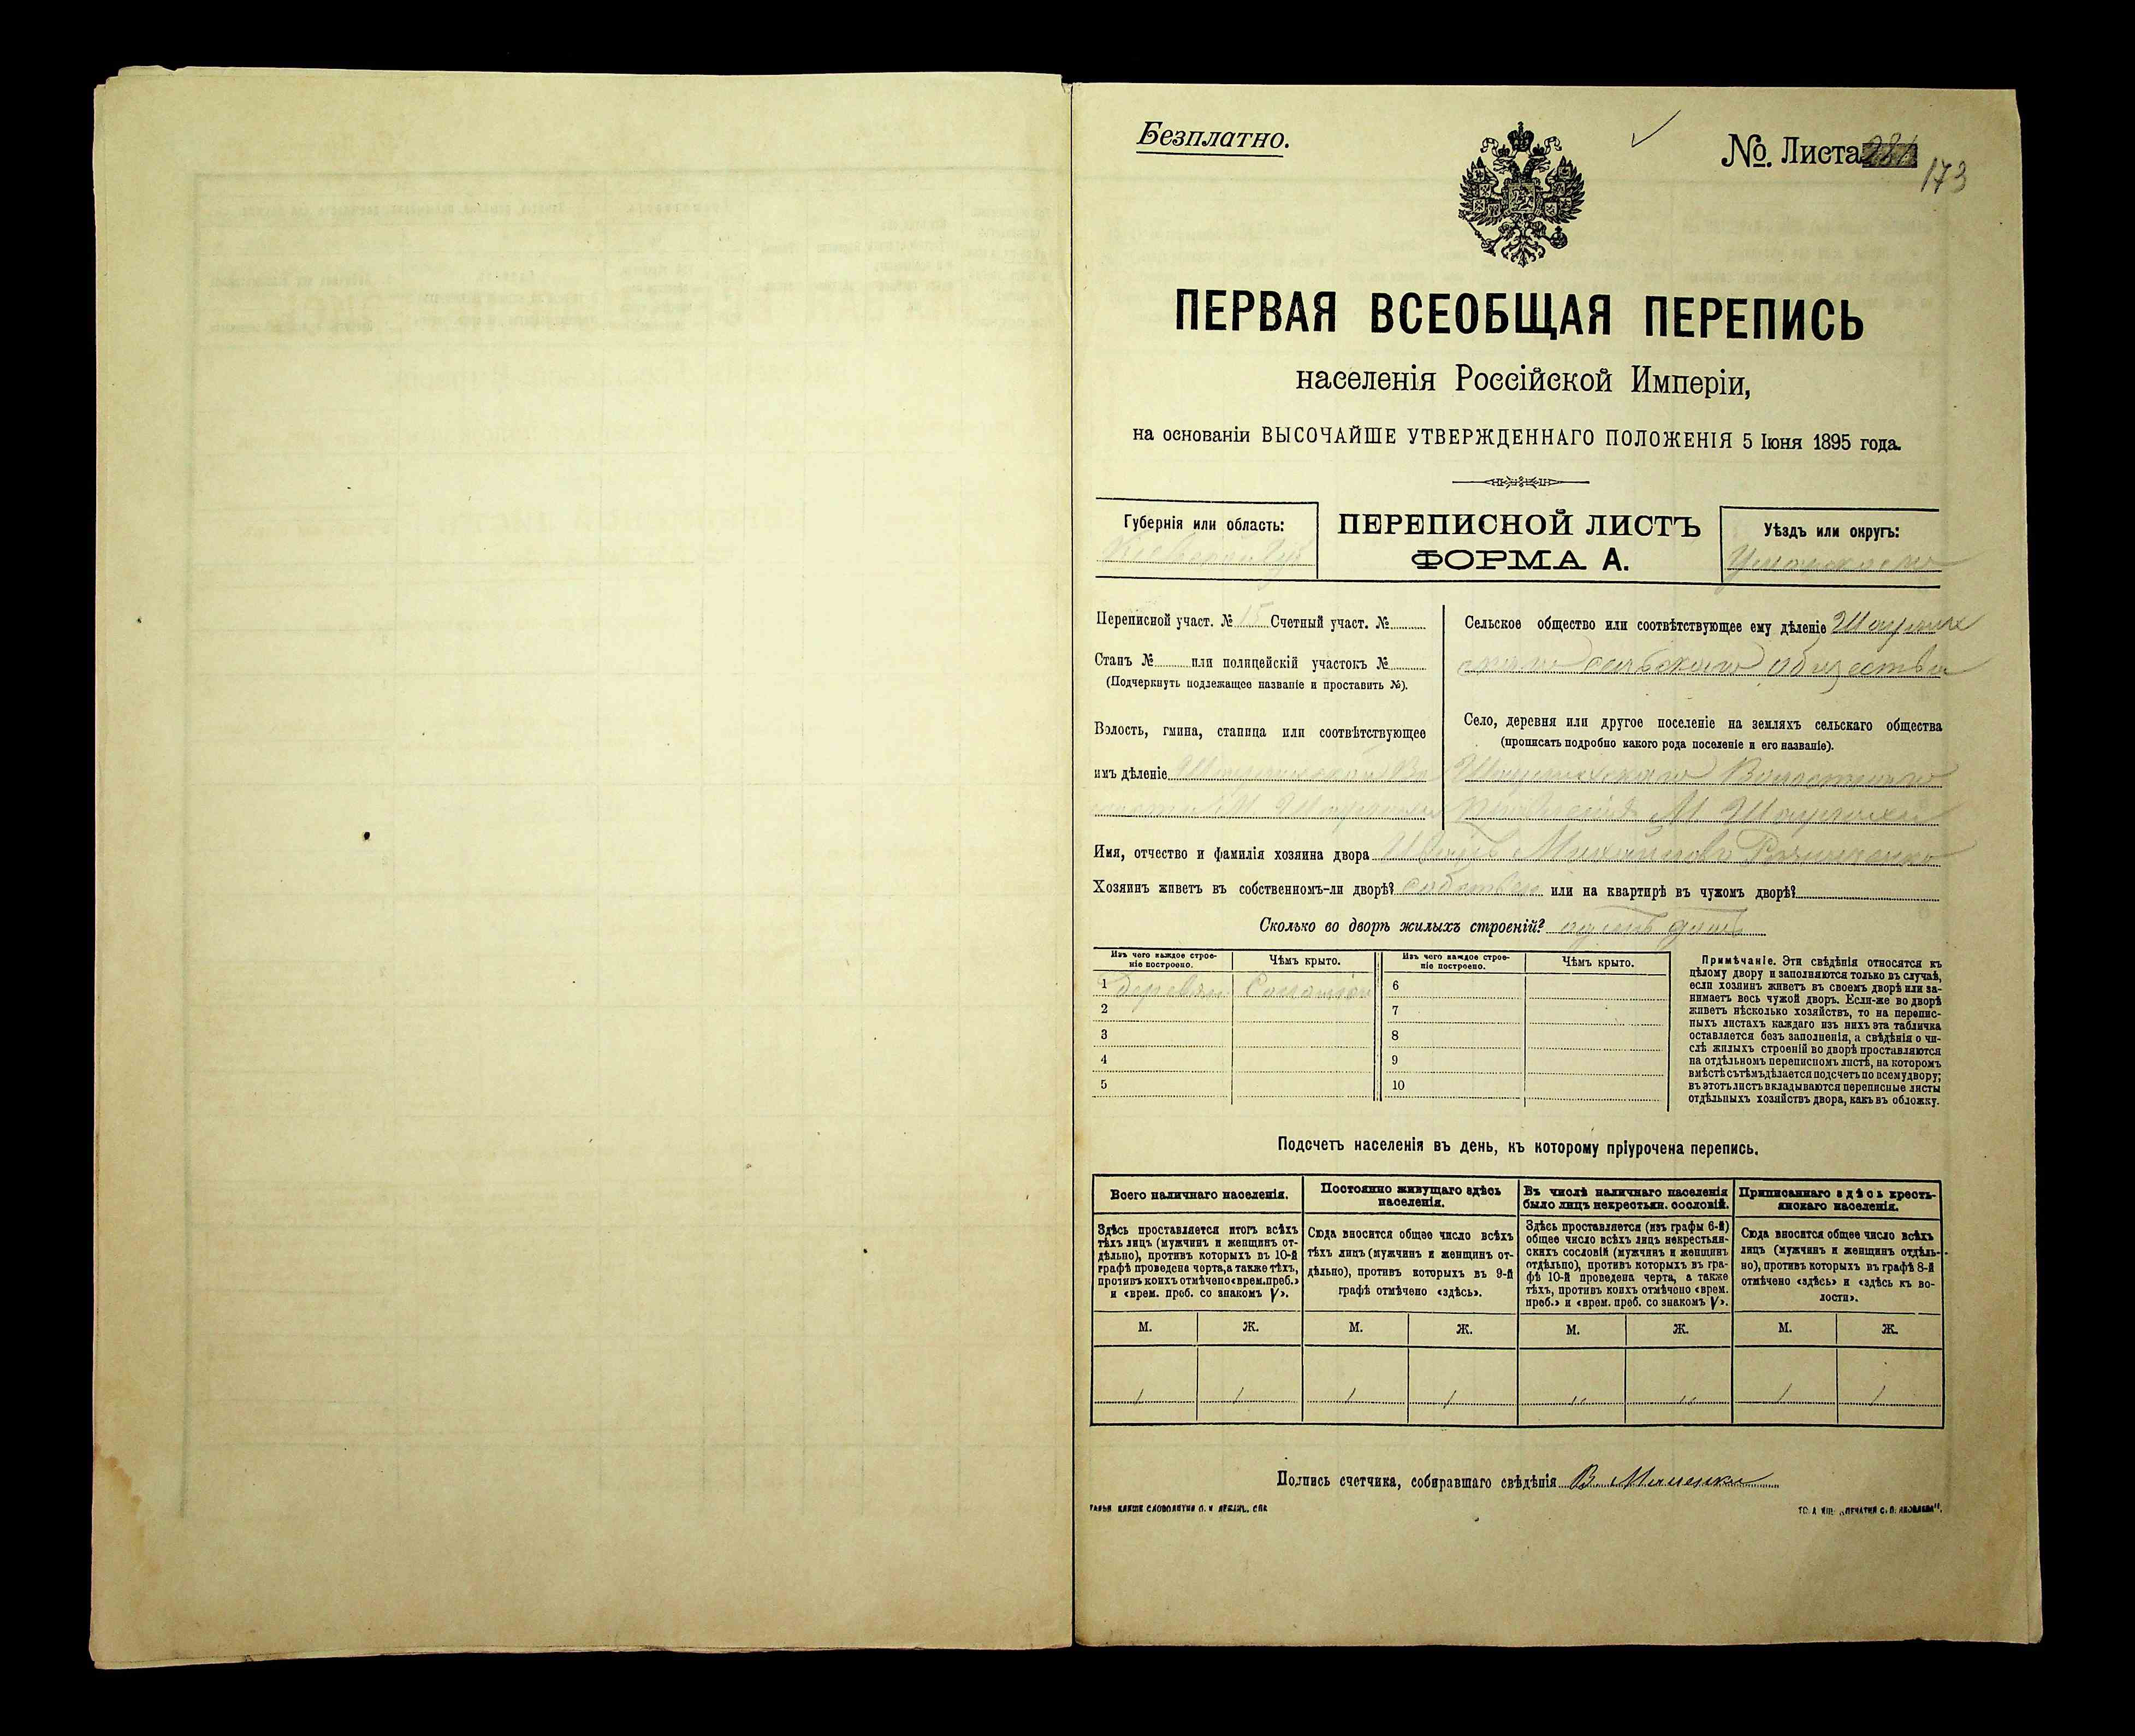 Безплатно.
№. Листа
173
ПЕРВАЯ ВСЕОБЩАЯ ПЕРЕПИСЬ
населенія Россійской Имперіи,
на основаніи ВЫСОЧАЙШЕ УТВЕРЖДЕННАГО ПОЛОЖЕНІЯ 5 Іюня 1895 года.
Губернія или область:
Кіевской Губ
ПЕРЕПИСНОЙ ЛИСТЪ
ФОРМА А.
Уѣздъ или округъ:
Уманскаго
Переписной участ. № 15 Счетный участ. №
Станъ № или полицейскій участокъ №
(Подчеркнуть подлежащее названіе и проставить №).
Волость, гмина, станица или соотвѣтствующее
имъ дѣленіе
Сельское общество или соотвѣтствующее ему дѣленіе
сельскаго общества
Село, деревня или другое поселеніе на земляхъ сельскаго общества
(прописать подробно какого рода поселеніе и его названіе).
Имя, отчество и фамилія хозяина двора Иванъ Михайловъ
Хозяинъ живетъ въ собственномъ-ли дворѣ? или на квартирѣ въ чужомъ дворѣ?
Сколько во дворѣ жилыхъ строеній? одинъ домъ
Изъ чего каждое строе-
ніе построено.
Чѣмъ крыто.
1 деревян Соломой
2
3
4
5
Изъ чего каждое строе-
ніе построено.
Чѣмъ крыто.
6
7
8
9
10
Примѣчаніе. Эти свѣдѣнія относятся къ
цѣлому двору и заполняются только въ случаѣ,
если хозяинъ живетъ въ своемъ дворѣ или за-
нимаетъ весь чужой дворъ. Если-же во дворѣ
живетъ нѣсколько хозяйствъ, то на перепис-
ныхъ листахъ каждаго изъ нихъ эта табличка
оставляется безъ заполненія, а свѣдѣнія о чи-
слѣ жилыхъ строеній во дворѣ проставляются
на отдѣльномъ переписномъ листѣ, на которомъ
вмѣстѣ съ тѣмъ дѣлается подсчетъ по всему двору;
въ этотъ листъ вкладываются переписные листы
отдѣльныхъ хозяйствъ двора, какъ въ обложку.
Подсчетъ населенія въ день, къ которому пріурочена перепись.
Всего наличнаго населенія.
Здѣсь проставляется итогъ всѣхъ
тѣхъ лицъ (мужчинъ и женщинъ от-
дѣльно), противъ которыхъ въ 10-й
графѣ проведена черта, а также тѣхъ,
противъ коихъ отмѣчено «врем. преб.»
и «врем. преб. со знакомъ V».
М. Ж.
1 1
Постоянно живущаго здѣсь
населенія.
Сюда вносится общее число всѣхъ
тѣхъ лицъ (мужчинъ и женщинъ от-
дѣльно), противъ которыхъ въ 9-й
графѣ отмѣчено «здѣсь».
М. Ж.
1 1
Въ числѣ наличнаго населенія
было лицъ некрестьян. сословій.
Здѣсь проставляется (изъ графы 6-й)
общее число всѣхъ лицъ некрестьян-
скихъ сословій (мужчинъ и женщинъ
отдѣльно), противъ которыхъ въ гра-
фѣ 10-й проведена черта, а также
тѣхъ, противъ коихъ отмѣчено «врем.
преб.» и «врем. преб. со знакомъ V».
М. Ж.
" "
Приписаннаго здѣсь кресть-
янскаго населенія.
Сюда вносится общее число всѣхъ
лицъ (мужчинъ и женщинъ отдѣль-
но), противъ которыхъ въ графѣ 8-й
отмѣчено «здѣсь» и «здѣсь къ во-
лости».
М. Ж.
1 1
Подпись счетчика, собиравшаго свѣдѣнія В.